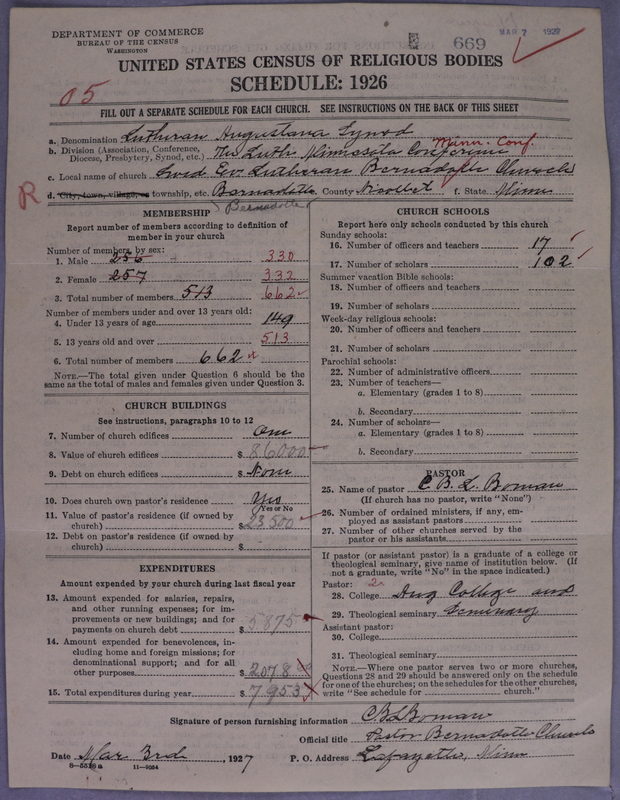 DEPARTMENT OF COMMERCE
BUREAU OF THE CENSUS
WASHINGTON
669
MAR 7 1927
UNITED STATES CENSUS OF RELIGIOUS BODIES
SCHEDULE: 1926
05
FILL OUT A SEPARATE SCHEDULE FOR EACH CHURCH. SEE INSTRUCTIONS ON THE BACK OF THIS SHEET
a. Denomination Lutheran Augustana Synod
Minn. Conf.
b. Division (Association, Conference, Diocese, Presbytery, Synod, etc.) The Luth Minnesota Conference
c. Local name of church Swed Ev. Lutheran Bernadotte Church
R
d. City, town, village, or township, etc. Bernadotte County Nicollet f. State Minn
Bernadotte
MEMBERSHIP
Report number of members according to definition of member in your church
Number of members by sex:
1. Male 256 330
2. Female 257 332
3. Total number of members 513 662
Number of members under and over 13 years old:
4. Under 13 years of age 149
5. 13 years old and over 513
6. Total number of members 662
NOTE.—The total given under Question 6 should be the same as the total of males and females given under Question 3.
CHURCH BUILDINGS
See instructions, paragraphs 10 to 12
7. Number of church edifices One
8. Value of church edifices $ 86000
9. Debt on church edifices $ None
10. Does church own pastor's residence Yes
Yes or No
11. Value of pastor's residence (if owned by church) $ 23500
12. Debt on pastor's residence (if owned by church) $
EXPENDITURES
Amount expended by your church during last fiscal year
13. Amount expended for salaries, repairs, and other running expenses; for improvements or new buildings; and for payments on church debt $ 5875
14. Amount expended for benevolences, including home and foreign missions; for denominational support; and for all other purposes $ 2078
15. Total expenditures during year $ 7953
CHURCH SCHOOLS
Report here only schools conducted by this church
Sunday schools:
16. Number of officers and teachers 17
17. Number of scholars 102
Summer vacation Bible schools:
18. Number of officers and teachers
19. Number of scholars
Week-day religious schools:
20. Number of officers and teachers
21. Number of scholars
Parochial schools:
22. Number of administrative officers
23. Number of teachers—
a. Elementary (grades 1 to 8)
b. Secondary
24. Number of scholars—
a. Elementary (grades 1 to 8)
b. Secondary
PASTOR
25. Name of pastor C. B. L. Boman
(If church has no pastor, write "None")
26. Number of ordained ministers, if any, employed as assistant pastors
27. Number of other churches served by the pastor or his assistants
If pastor (or assistant pastor) is a graduate of a college or theological seminary, give name of institution below. (If not a graduate, write "No" in the space indicated.)
Pastor:
28. College Aug College and
29. Theological seminary Seminary
Assistant pastor:
30. College
31. Theological seminary
NOTE.—Where one pastor serves two or more churches, Questions 28 and 29 should be answered only on the schedule for one of the churches; on the schedules for the other churches, write "See schedule for church."
Signature of person furnishing information C B L Boman
Official title Pastor Bernadotte Church
Date Mar 3rd, 1927 P. O. Address Lafayette, Minn
11—9564